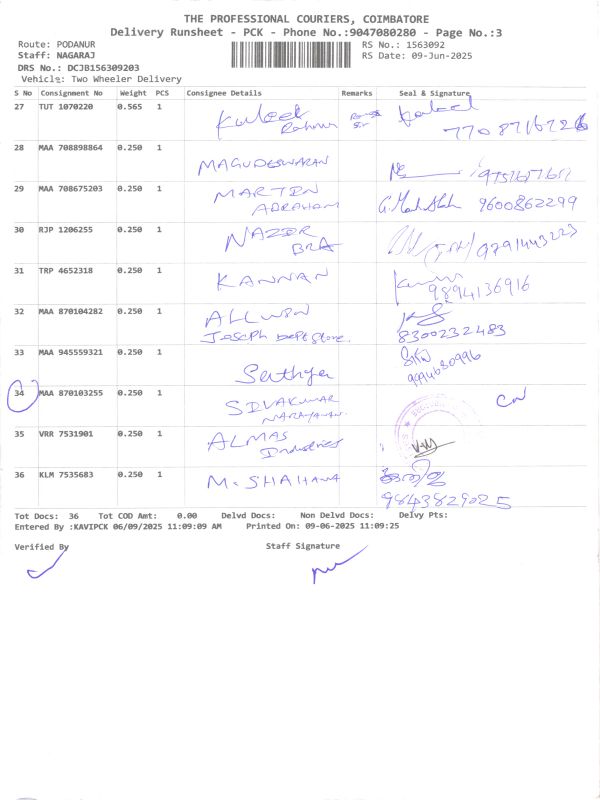 THE PROFESSIONAL COURIERS, COIMBATORE
Delivery Runsheet - PCK - Phone No.:9047080280 - Page No.:3
Route: PODANUR RS No.: 1563092
Staff: NAGARAJ RS Date: 09-Jun-2025
DRS No.: DCJB156309203
Vehicle: Two Wheeler Delivery
S No Consignment No Weight PCS Consignee Details Remarks Seal & Signature
27 TUT 1070220 0.565 1 Kaleel
Rahman
28 MAA 708898864 0.250 1 MAGUDESWARAN
29 MAA 708675203 0.250 1 MARTIN
ABRAHAM 9600862299
30 RJP 1206255 0.250 1 NAZER
BRA 9791443223
31 TRP 4652318 0.250 1 KANNAN
9894136916
32 MAA 870104282 0.250 1 ALLWIN
Joseph Dept Store. 8300232483
33 MAA 945559321 0.250 1 Sathya
9994680996
34 MAA 870103255 0.250 1 SIVAKUMAR
NARAYANAN.
35 VRR 7531901 0.250 1 ALMAS
Industries
36 KLM 7535683 0.250 1 M. SHAHANA
9843829025
Tot Docs: 36 Tot COD Amt: 0.00 Delvd Docs: Non Delvd Docs: Delvy Pts:
Entered By :KAVIPCK 06/09/2025 11:09:09 AM Printed On: 09-06-2025 11:09:25
Verified By Staff Signature